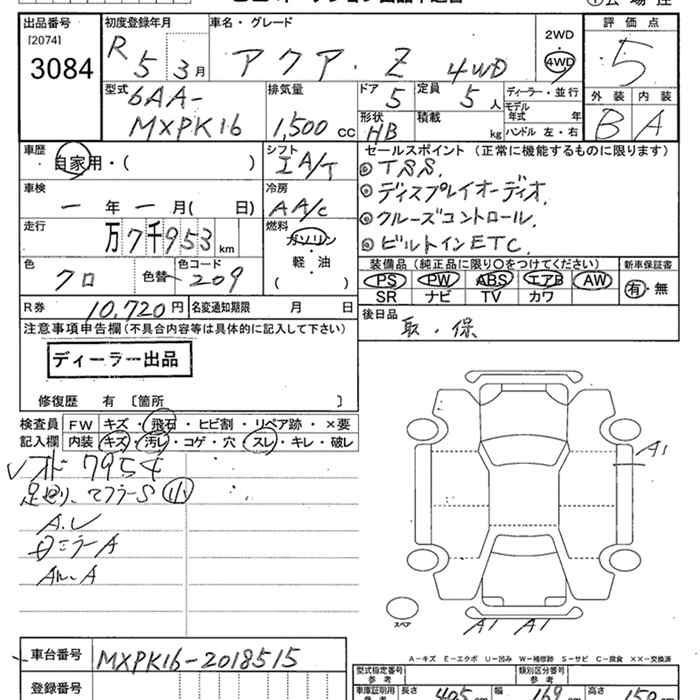 出品番号
[2074]
3084
初度登録年月
R 5 3月
車名・グレード
アクア・Z 4WD
2WD
4WD
評価点
5
外装 内装
B A
型式
6AA-
MXPK16
排気量
1,500 cc
ドア
5
定員
5 人
形状
HB
積載
kg
ディーラー・並行
モデル年式 年
ハンドル 左・右
車歴
自家用・( )
シフト
IA/T
車検
一 年 一 月( 日)
冷房
AA/C
走行
万7千953km
燃料
ガソリン
軽・油
( )
色
クロ
色替
色コード
209
R券
10,720円
名変通知期限 月 日
セールスポイント (正常に機能するものに限ります)
◎TSS.
◎ディスプレイオーディオ.
◎クルーズコントロール.
◎ビルトインETC.
装備品(純正品に限り○をつけてください)
PS PW ABS エアB AW
SR ナビ TV カワ
新車保証書
有・無
後日品
取・保
注意事項申告欄(不具合内容等は具体的に記入して下さい)
ディーラー出品
修復歴 有 〔箇所 〕
検査員
記入欄
FW キズ・飛石・ヒビ割・リペア跡・×要
内装 キズ・汚レ・コゲ・穴・スレ・キレ・破レ
7954
マフラーS 小
ミラーA
A1
A1 A1
スペア
A-キズ E-エクボ U-凹み W-補修跡 S-サビ C-腐食 XX-交換済
車台番号
MXPK16-2018515
登録番号
型式指定番号
類別区分番号
参考
車庫証明用
参考
長さ 405
幅 169
高さ 150